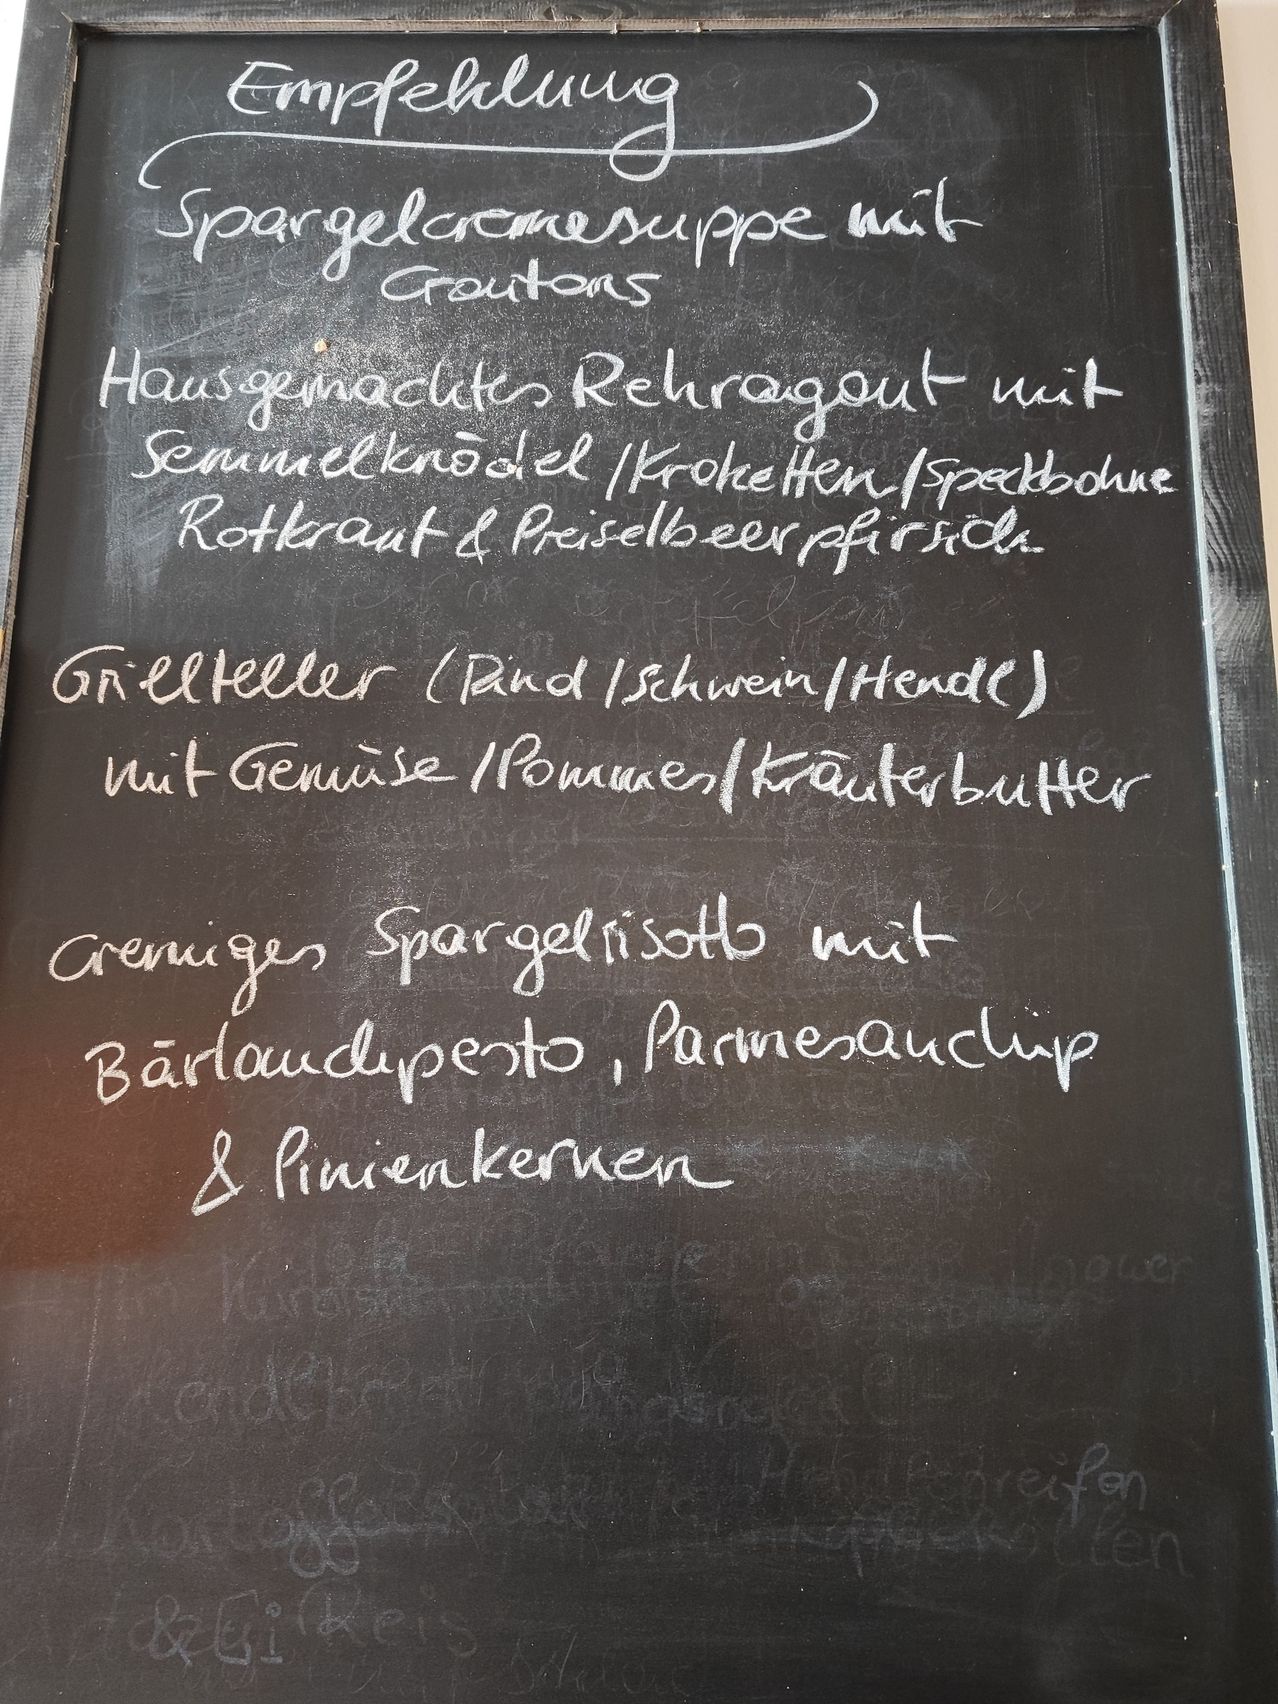 Empfehlung
Spargelcremesuppe mit
Croutons
Hausgemachtes Rehragout mit
Semmelknödel / Kroketten / Speckbohne
Rotkraut & Preiselbeerpfirsich
Grillteller (Rind / Schwein / Hendl)
mit Gemüse / Pommes / Kräuterbutter
Cremiges Spargelrisotto mit
Bärlauchpesto, Parmesanchip
& Pinienkernen